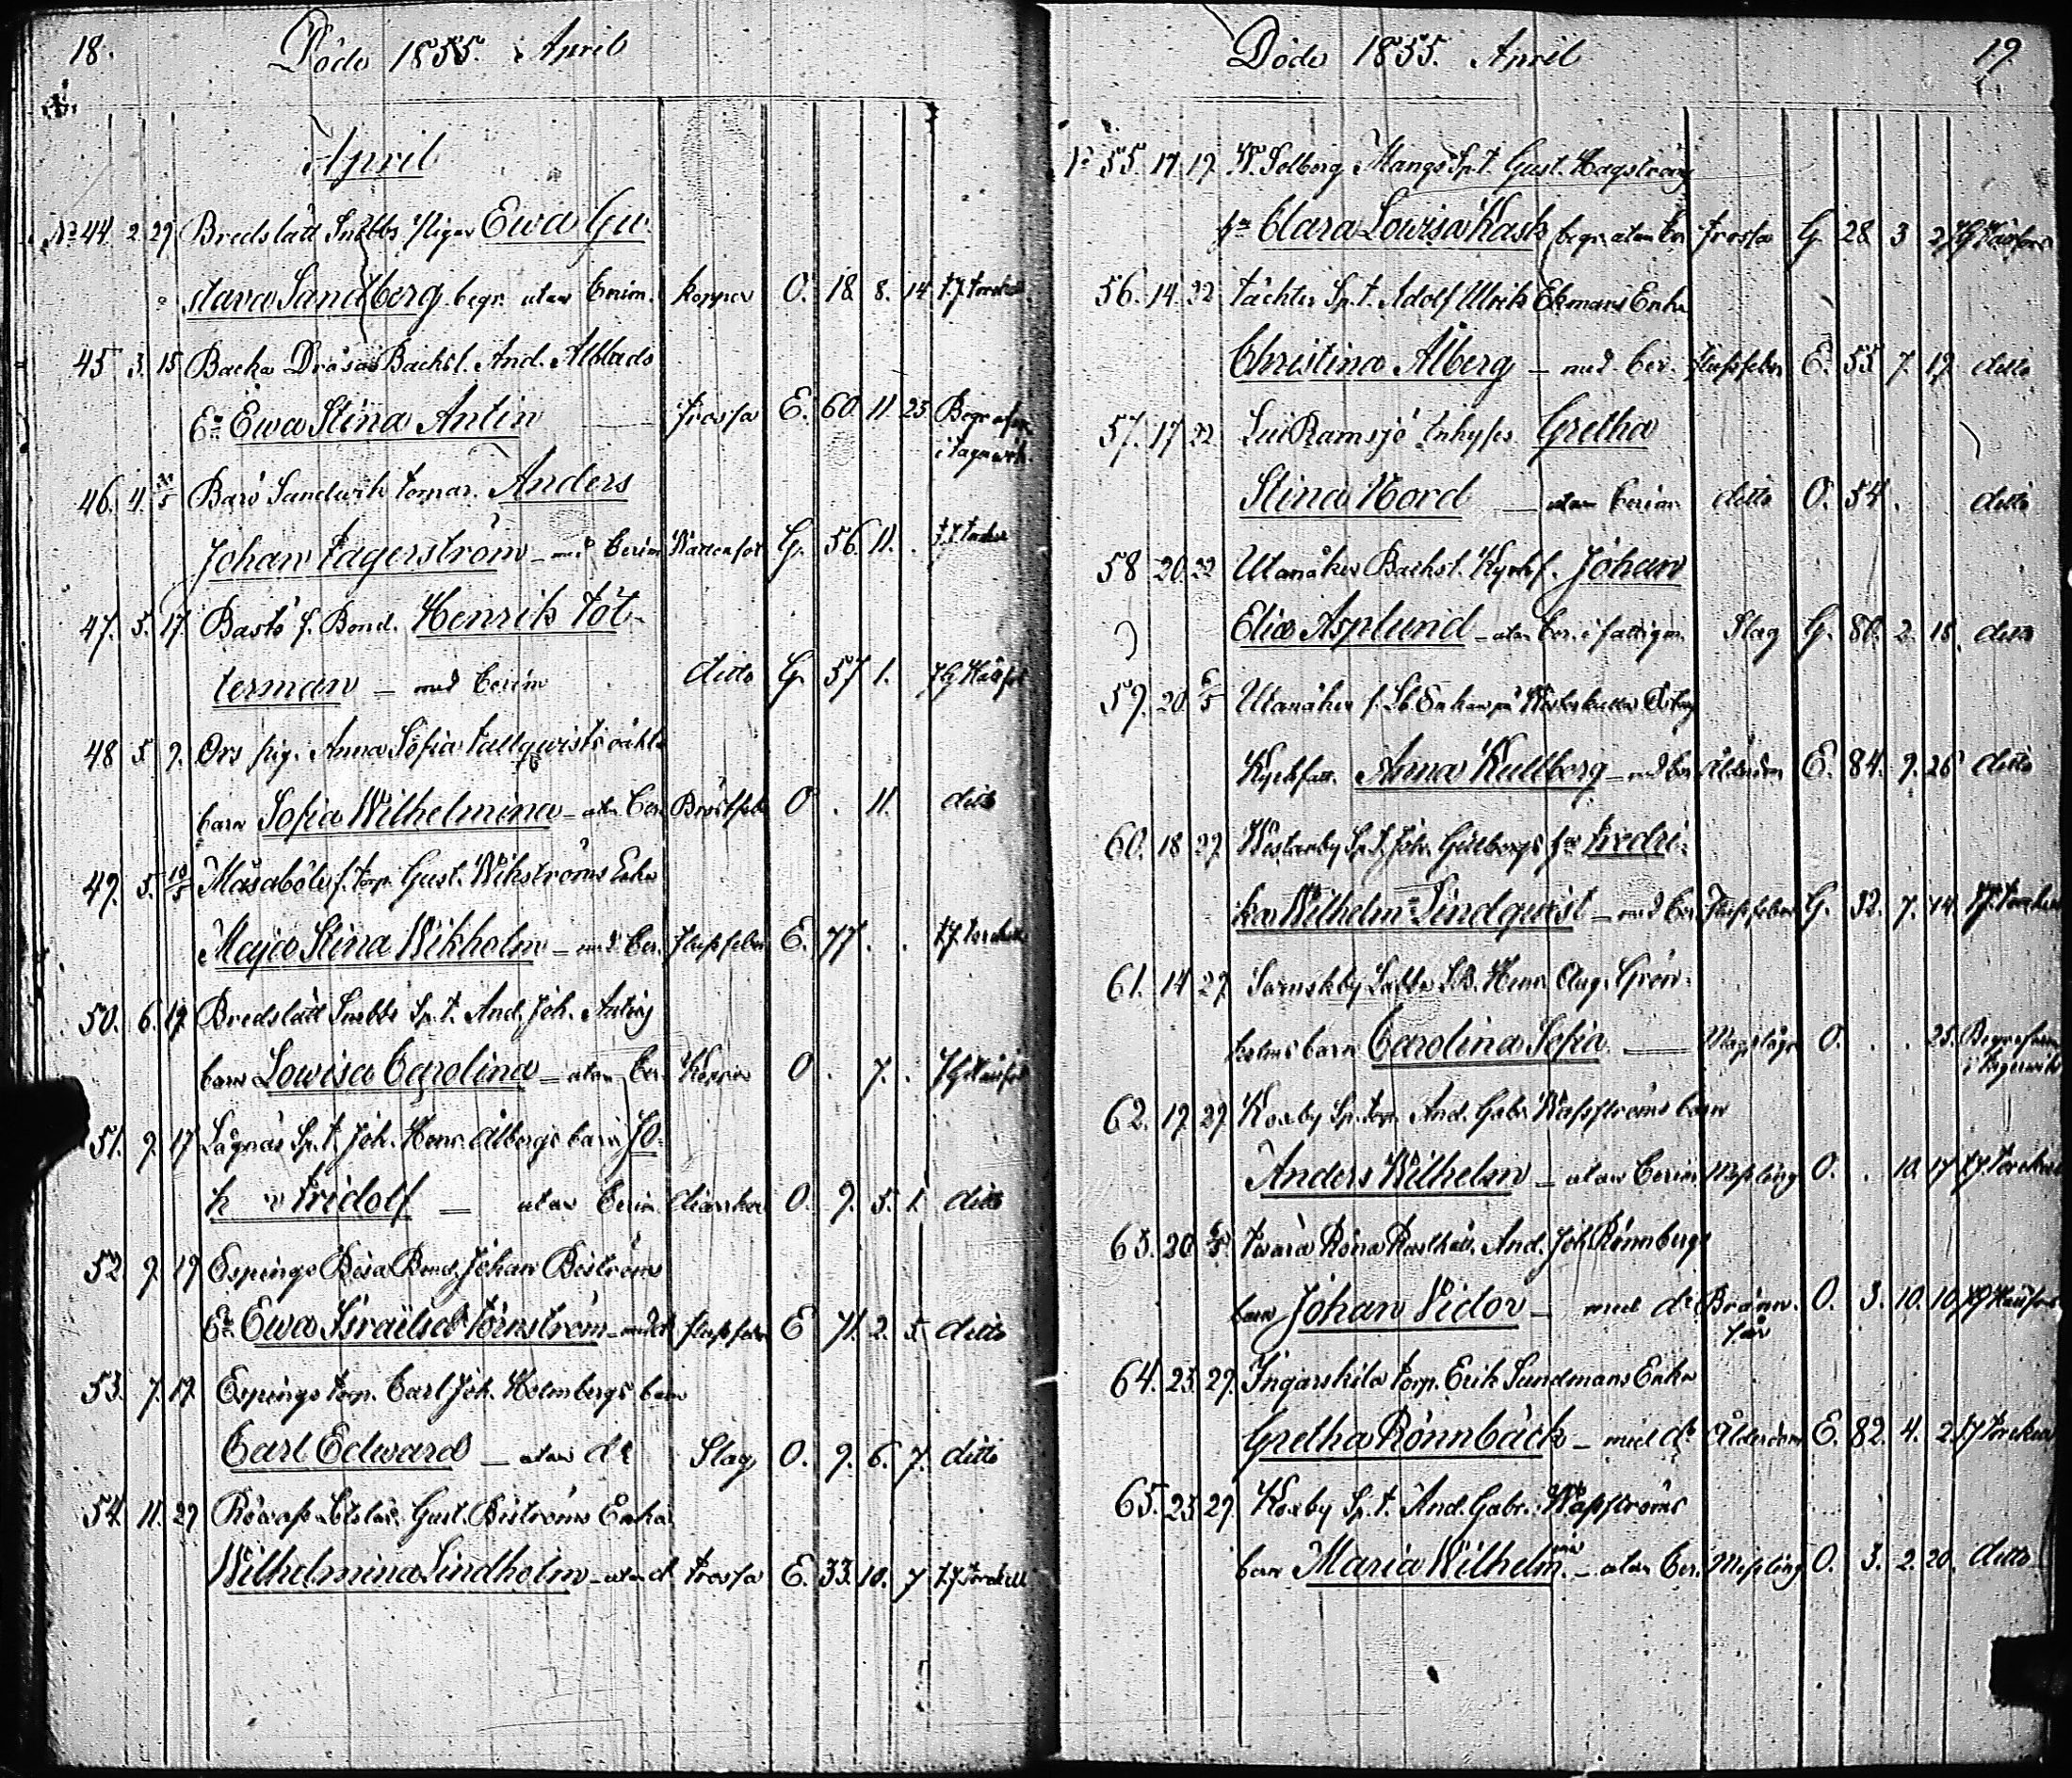 18. Döde 1855. April
April
No 44. 2. 29 Bredslätt Snebbs Pigan Ewa Gu-
stava Sandberg begr. utan Cerim. Koppor O. 18. 8. 14
45 3. 15 Backa Dråsas Backst. And. Alblads
Ea Ewa Stina Antin frossa E. 60. 11. 23. Begrafven
46. 4. Barö Sandwik Anders
Johan Fagerström - med Cerim Wattensot G. 56. 11. .
47. 5. 17. Bastö f. Bond. Henrik Töt-
terman - med Cerim ditto G. 57 1.
48 5. 9. Ors pig. Anna Sofia Tallqwists oäkta
barn Sofia Wilhelmina - utan Cer. O . 11. ditto
49. 5. Måsaböle f. Torp. Gust. Wikströms Enka
Maja Stina Wikholm - med Cer. flussfeber E. 77. . .
50. 6. 19 Bredslätt Snebbs Sp.t. And. Joh. Antins
barn Lowisa Carolina - utan Cer. O . 7. .
51. 9. 17 Lågnäs Sp.t. Joh. Henr. Albergs barn Jo-
h n Fridolf - utan Cerim. O. 9. 5. 1. ditto
52 9. 19 Espings Böla Bond. Johan Biströms
Ea Ewa Israëlsd. Törnström flussfeber E 71. 2. 5. ditto
53. 7. 19. Espings Torp. Carl Joh. Holmbergs barn
Carl Edward - utan do Slag O. 9. 6. 7. ditto
54. 11. 29 Gust. Biströms Enka
Wilhelmina Lindholm - utan d frossa E. 33. 10. 7
Döde 1855. April 19
No 55. 17. 19. N. Solberg Mangs Sp.t. Gust. Hagströms
fru Clara Lowisa Kask begr. utan Cer. frossa G. 28 3
56. 14. 22 Täckter Sp.t. Adolf Ulrik Ekmans Enka
Christina Alberg - med Cer. flussfeber E. 55 7. 19 ditto
57. 17 22 Ramsjö Inhyses Gretha
Stina Nord - utan Cerim ditto O. 54. ditto
58 20. 22 Utanåker Backst. Kyrkf. Johan
Elia Asplund - utan Cer. i fattigm. Slag G. 80. 2. 18. ditto
59. 20. Utanåker
Kyrkfatt. Anna Kullberg - med Cer Ålderdom E. 84. 9. 26 ditto
60. 18 29. Westanby Sp.t. Joh. Gillbergs fru Fredri-
ka Wilhelm Lindqwist - med Cer. flussfeber G. 32. 7. 14.
61. 14 29. Henr. Aug. Grön-
holms barn Carolina Sofia - O. . . 25. Begrafven
62. 19. 29. Koxby Sp. Torp. And. Gabr. Wassströms barn
Anders Wilhelm - utan Cerim Messling O. . 10. 17
63. 20 Rosthåll. And. Joh. Rönnbergs
barn Johan Vidor - med do Bränn- O. 3. 10. 10
sår
64. 23. 29. Ingarskila Torp. Erik Sundmans Enka
Gretha Rönnbäck - med do Ålderdom E. 82. 4. 2.
65. 23 29. Koxby Sp.t. And. Gabr. Wassströms
barn Maria Wilhelmina - utan Cer. Messling O. 3. 2. 20. ditto